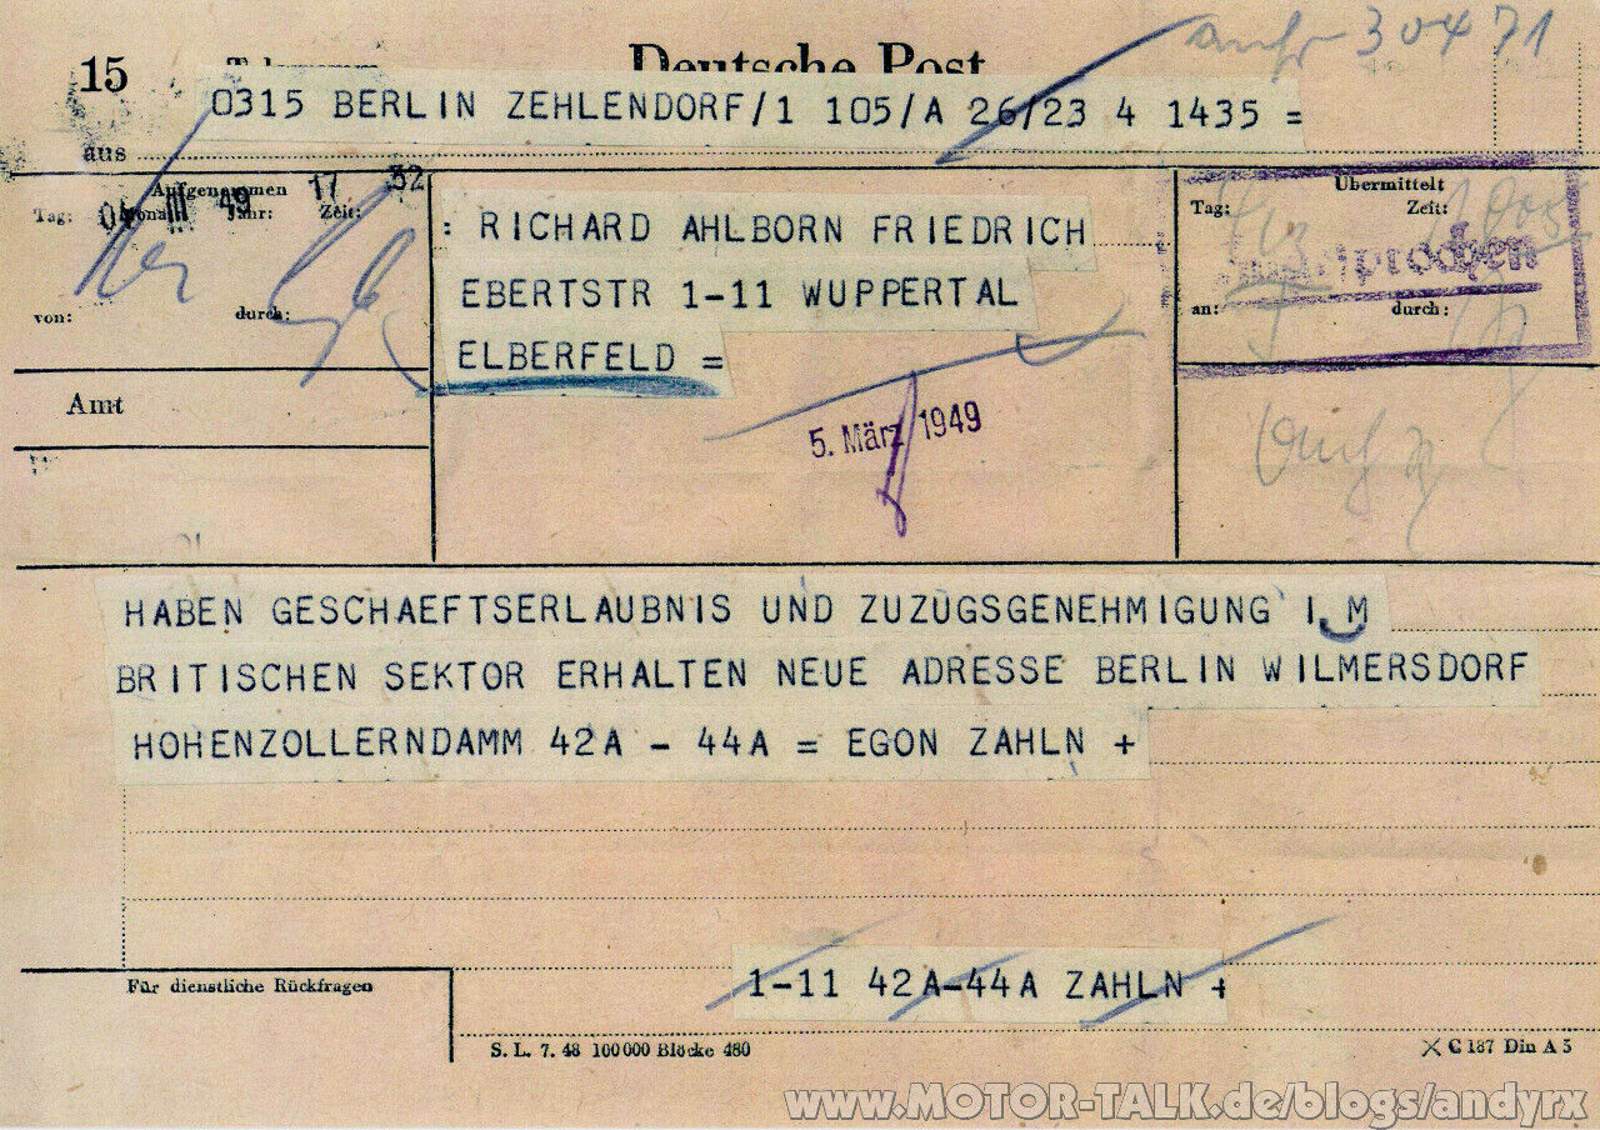 anfr 30471
15
Telegramm
Deutsche Post
0315 BERLIN ZEHLENDORF/1 105/A 26/23 4 1435 =
aus
Aufgenommen
Tag: Monat: Jahr: Zeit:
III 49 17 32
von: durch:
Amt
: RICHARD AHLBORN FRIEDRICH
EBERTSTR 1-11 WUPPERTAL
ELBERFELD =
5. März 1949
Übermittelt
Tag: Zeit:
an: durch:
HABEN GESCHAEFTSERLAUBNIS UND ZUZUGSGENEHMIGUNG I M
BRITISCHEN SEKTOR ERHALTEN NEUE ADRESSE BERLIN WILMERSDORF
HOHENZOLLERNDAMM 42A - 44A = EGON ZAHLN +
Für dienstliche Rückfragen
1-11 42A-44A ZAHLN +
S. L. 7. 48 100000 Blöcke 480
C 187 Din A 5
www.MOTOR-TALK.de/blogs/andyrx